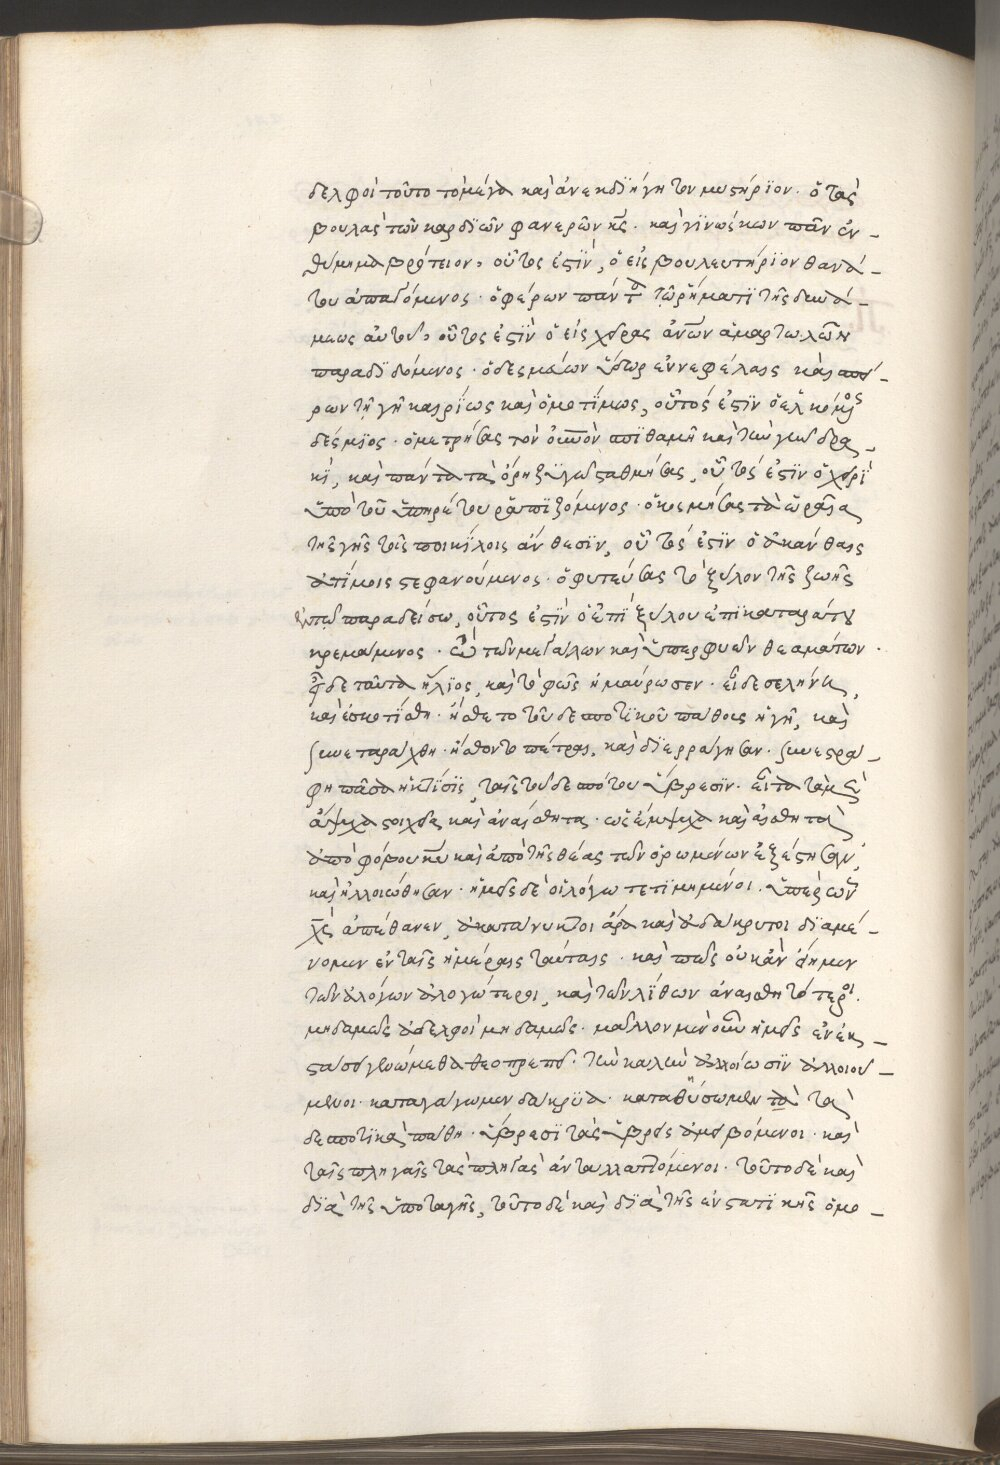 δελφοὶ τοῦτο τὸ μέγα καὶ ἀνεκδϊήγητον μυστήρϊον· ὁ τὰς
βουλὰς τῶν καρδϊῶν φανερῶν κς̅· καὶ γϊνώσκων πᾶν ἐν-
θύμημα βρότειον, οὗτος ἐστϊν, ὁ εἰς βουλευτήρϊον θανά-
του ἀπαγόμενος· ὁ φέρων πάντα τῷ ῥήματϊ τῆς δυνά-
μεως αὐτοῦ, οὗτος ἐστϊν ὁ εἰς χεῖρας ἀνων̅ ἁμαρτωλῶν
παραδϊδόμενος· ὁ δεσμεύων ὕδωρ ἐν νεφέλαις καὶ σπεί-
ρων τῇ γῇ καιρίως καὶ ὁμοτίμως, οὗτός ἐστϊν ὁ ἑλκόμενος
δέσμϊος· ὁ μετρήσας τὸν οὐνὸν̅ σπϊθαμῇ καὶ τὴν γῆν δρα-
κϊ, καὶ πάντα τὰ ὄρη ζϋγῷ σταθμήσας, οὗτός ἐστϊν ὁ χειρὶ
ὑπὸ τοῦ ὑπηρέτου ῥαπϊζόμενος· ὁ κοσμήσας τὰ ὡραῖα
τῆς γῆς τοῖς ποικίλοις ἄνθεσϊν, οὗτός ἐστϊν ὁ ἀκάνθαις
ἀτίμοις στεφανούμενος· ὁ φυτεύσας τὸ ξύλον τῆς ζωῆς
ἐν τῷ παραδείσω, οὗτος ἐστϊν ὁ ἐπϊ ξύλου ἐπϊκαταράτου
κρεμάμενος· ὢ τῶν μεγάλων καὶ ὑπερφυῶν θεαμάτων·
εἶδε ταῦτα ἥλϊος, καὶ τὸ φῶς ἠμαύρωσεν· εἶδε σελήνη,
καὶ ἐσκοτίσθη· ἤσθετο τοῦ δεσποτϊκοῦ πάθους ἡ γῆ, καὶ
συνεταράχθη· ἤσθοντο πέτραι, καὶ δϊερράγησαν· συνεστρά-
φη πᾶσα ἡ κτίσϊς, ταῖς τοῦ δεσπότου ὕβρεσϊν· εἶτα τὰ μὲν
ἄψυχα στοιχεῖα καὶ ἀναίσθητα· ὡς ἔμψυχα καὶ αἰσθητὰ
ἀπὸ φόβου κυ̅ καὶ ἀπὸ τῆς θέας τῶν ὁρωμένων ἐξέστησαν,
καὶ ἠλλοιώθησαν· ἡμεῖς δὲ οἱ λόγω τετϊμημένοι· ὑπὲρ ὧν
χς̅ ἀπέθανεν, ἀκατανυκτοι ἄρα καὶ ἀδάκρυτοι δϊαμέ-
νομεν ἐν ταῖς ἡμέραις ταύταις· καὶ πῶς οὐκ ἂν εἴημεν
τῶν ἀλόγων ἀλογώτεροι, καὶ τῶν λίθων ἀναισθητότεροι·
μηδαμῶς ἀδελφοί μηδαμῶς· μᾶλλον μὲν οὖν ἡμεῖς ἐν ἐκ-
στάσει γενώμεθα θεοπρεπεῖ· τὴν καλὴν ἀλλοίωσϊν ἀλλοιού-
μενοι· καταγάγωμεν δάκρϋα· καταθύσωμεν τὰ τὰ
δεσποτϊκὰ πάθη· ὕβρεσϊ τὰς ὕβρεις ἀμειβόμενοι· καὶ
ταῖς πληγαῖς τὰς πληγὰς ἀνταλλαττόμενοι· τοῦτο δὲ καὶ
δϊὰ τῆς ὑποταγῆς, τοῦτο δὲ καὶ δϊὰ τῆς ἐνστατϊκῆς ὁμο-